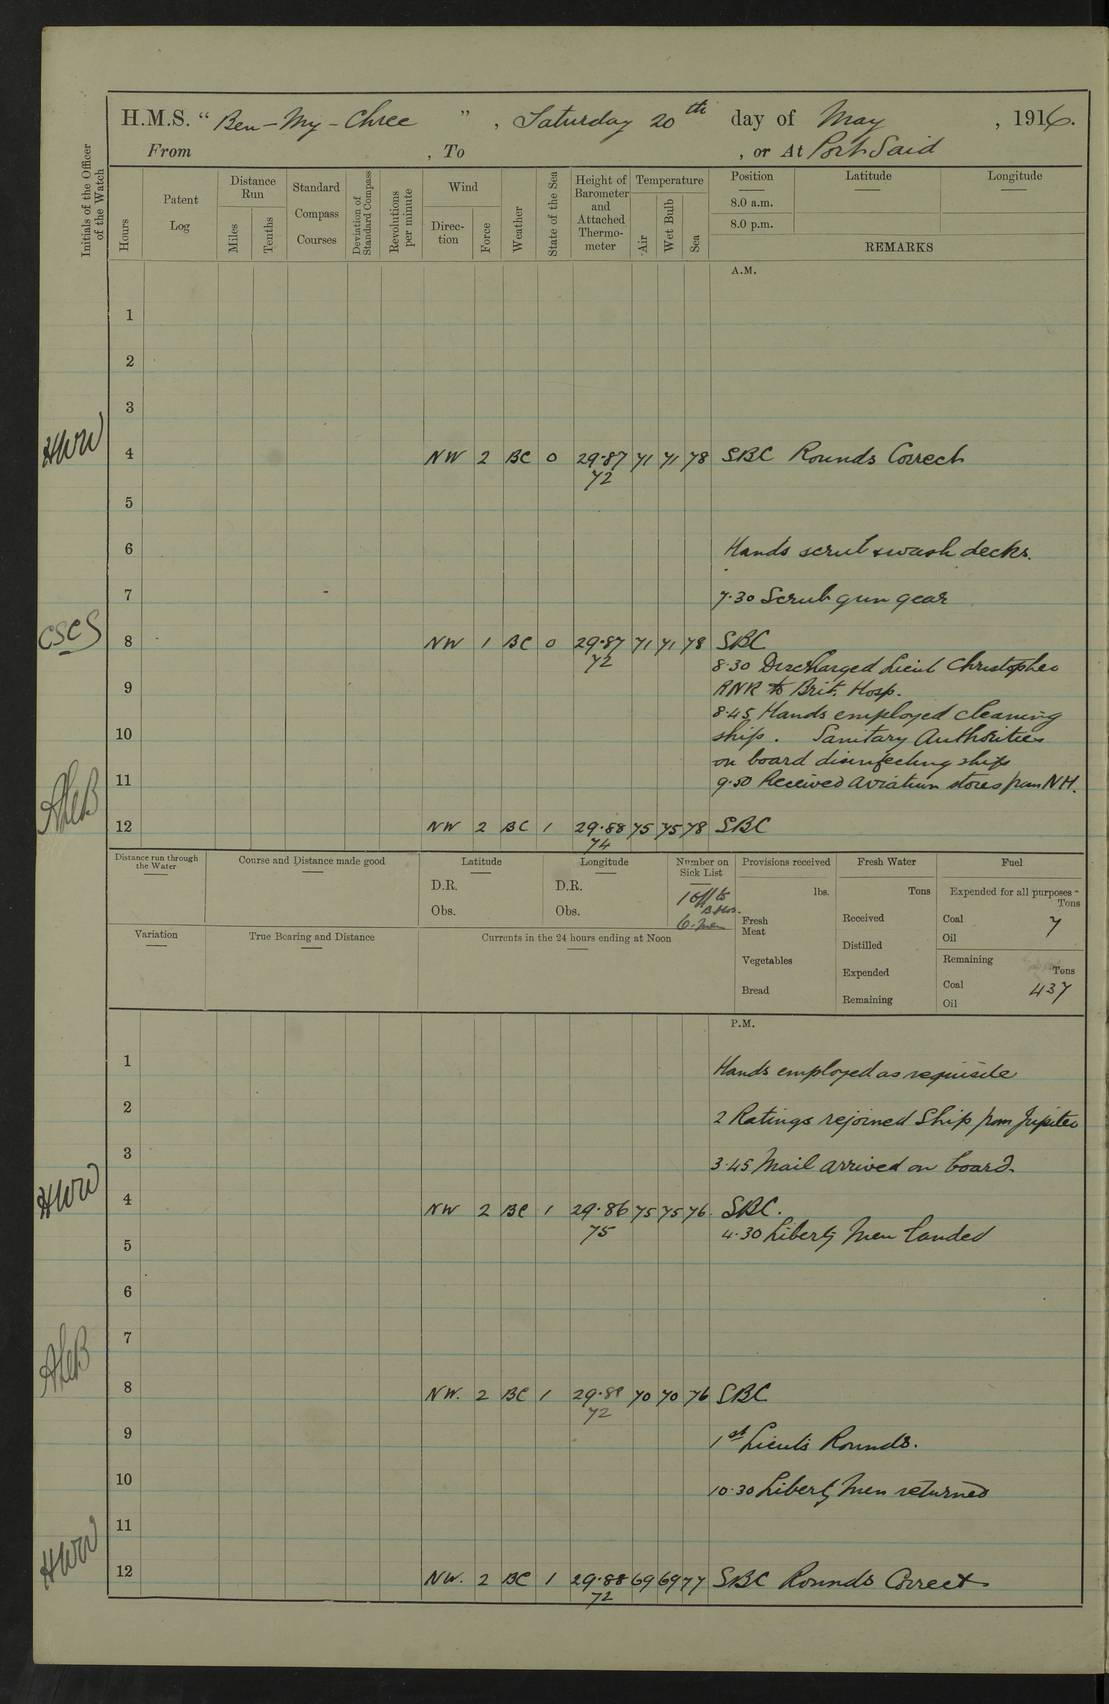 H.M.S. “ Ben-My-Chree ” , Saturday 20th day of May , 1916.
From , To , or At Port Said
Initials of the Officer of the Watch
Hours
Patent Log
Distance Run
Miles
Tenths
Standard Compass Courses
Deviation of Standard Compass
Revolutions per minute
Wind
Direction
Force
Weather
State of the Sea
Height of Barometer and Attached Thermometer
Temperature
Air
Wet Bulb
Sea
Position Latitude Longitude
8.0 a.m.
8.0 p.m.
REMARKS
A.M.
1
2
3
HWW 4 NW 2 BC 0 29.87 71 71 78 SBC Rounds Correct
72
5
6 Hands scrub & wash decks.
7 7.30 Scrub gun gear
CSCS 8 NW 1 BC 0 29.87 71 71 78 SBC
72 8.30 Discharged Lieut Christopher
9 RNR to Brit. Hosp.
8.45 Hands employed cleaning
10 ship. Sanitary Authorities
on board disinfecting ship
11 9.50 Received aviation stores from NH.
12 NW 2 BC 1 29.88 75 75 78 SBC
74
Distance run through the Water
Course and Distance made good
Latitude
D.R.
Obs.
Longitude
D.R.
Obs.
Number on Sick List
1 off to
B. Hos.
6. Men
Provisions received
lbs.
Fresh Meat
Vegetables
Bread
Fresh Water
Tons
Received
Distilled
Expended
Remaining
Fuel
Expended for all purposes -
Tons
Coal 7
Oil
Remaining
Tons
Coal 437
Oil
Variation
True Bearing and Distance
Currents in the 24 hours ending at Noon
P.M.
1 Hands employed as requisite
2 2 Ratings rejoined Ship from Jupiter
3 3.45 Mail arrived on board.
HWW 4 NW 2 BC 1 29.86 75 75 76 SBC.
75 4.30 Liberty Men landed
5
6
7
8 NW. 2 BC 1 29.88 70 70 76 SBC
72
9 1st Lieut's Rounds.
10 10.30 Liberty Men returned
11
HWW 12 NW. 2 BC 1 29.88 69 69 77 SBC Rounds Correct
72